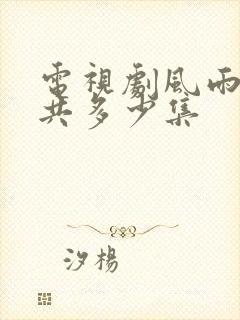 電視劇風雨
共多少集
汐楊